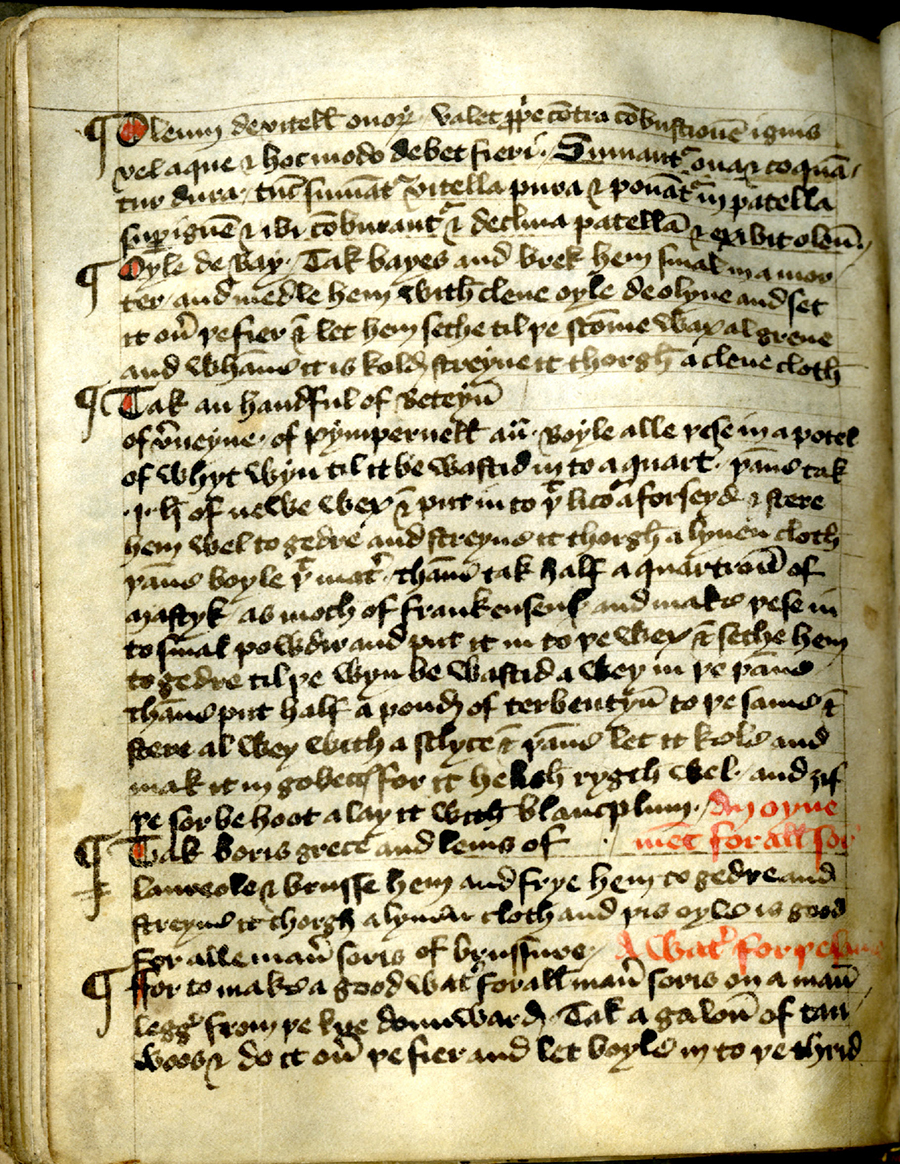 ¶ Oleum de vitell ouorꝝ · valet ꝓpe cōtra cōbustionē ignis
vel aque ⁊ hoc modo debet fieri · Sumant᷑ oua ⁊ coquā
tur dura · tūc sumāt᷑ vitella pura ⁊ ponāt᷑ in patella
suꝑ ignē ⁊ ibi cōburant᷑ ⁊ declina patellā ⁊ exibit oleū
¶ Oyle de Bay · Tak bayes and brek hem smal in a mor
ter · and medle hem with clene oyle de olyue and set
it ou̅ þe fier ⁊ let hem sethe til þe scōme wax al grene
and whan̄e it is kold streyne it thorgh a clene cloth
¶ Tak an handful of Beteyn̄
of v̄ueyne · of pympernell an̄ · Boyle alle þese in a potel
of whyt wyn til it be wastid in to a quart · þan̄e tak
·j· ħ of newe wex ⁊ put in to þ͛ lico᷑ aforseyd ⁊ stere
hem wel to gedre and streyne it thorgh a lynen cloth
þan̄e boyle þ͛ mat᷑ · than̄e tak half a quartron̄ of
mastyk · as moch of frankensens and make þese in
to smal powdir and put it in to þe wex ⁊ sethe hem
to gedre til þe wyn be wastid a wey in þe pan̄e
than̄e put half a pond of terbentyn̄ to þe same ⁊
stere al wey with a sclyce ⁊ þan̄e let it kole and
mak it in gobett for it heleth rygth wel · and ȝif
þe sor be hoot alay it with blancplum · An oyne
¶ Tak boris grece and leuis of mēt for all sor
laureole ⁊ brusse hem and frye hem to gedre and
streyne it thorgh a lynen cloth and þis oyle is good
for alle man̄ soris of brussure · A wat᷑ for þe
¶ ffor to make a good wat᷑ for all man̄ soris on a man̄
legg᷑ from þe kne dounward · Tak a galon̄ of tan
woos ⁊ do it ou̅ þe fier and let boyle in to þe thrid